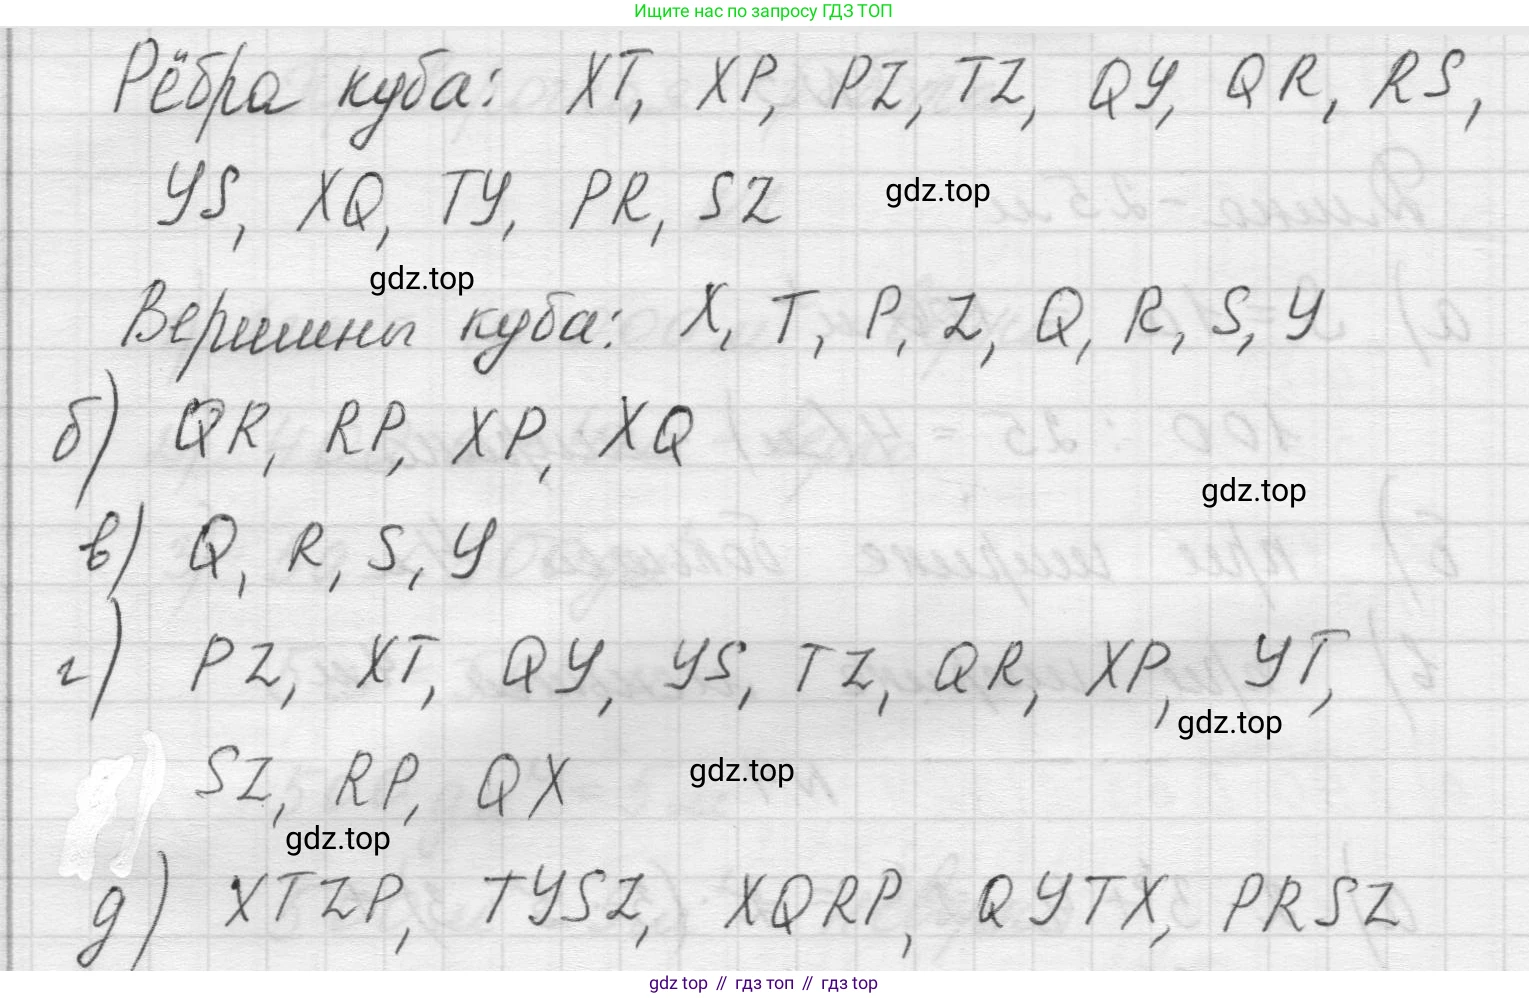 Ищите нас по запросу ГДЗ ТОП
Рёбра куба: XT, XP, PZ, TZ, QY, QR, RS,
YS, XQ, TY, PR, SZ
gdz.top
gdz.top
Вершины куба: X, T, P, Z, Q, R, S, Y
б) QR, RP, XP, XQ
gdz.top
в) Q, R, S, Y
г) PZ, XT, QY, YS, TZ, QR, XP, YT,
gdz.top
SZ, RP, QX
gdz.top
gdz.top
д) XTZP, TYSZ, XQRP, QYTX, PRSZ
gdz top // гдз топ // гдз top